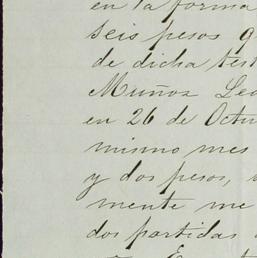 en la forma
seis pesos q
de dicha test
Muñoz Leo
en 26 de Octu
mismo mes
y dos pesos,
mente me
dos partidas